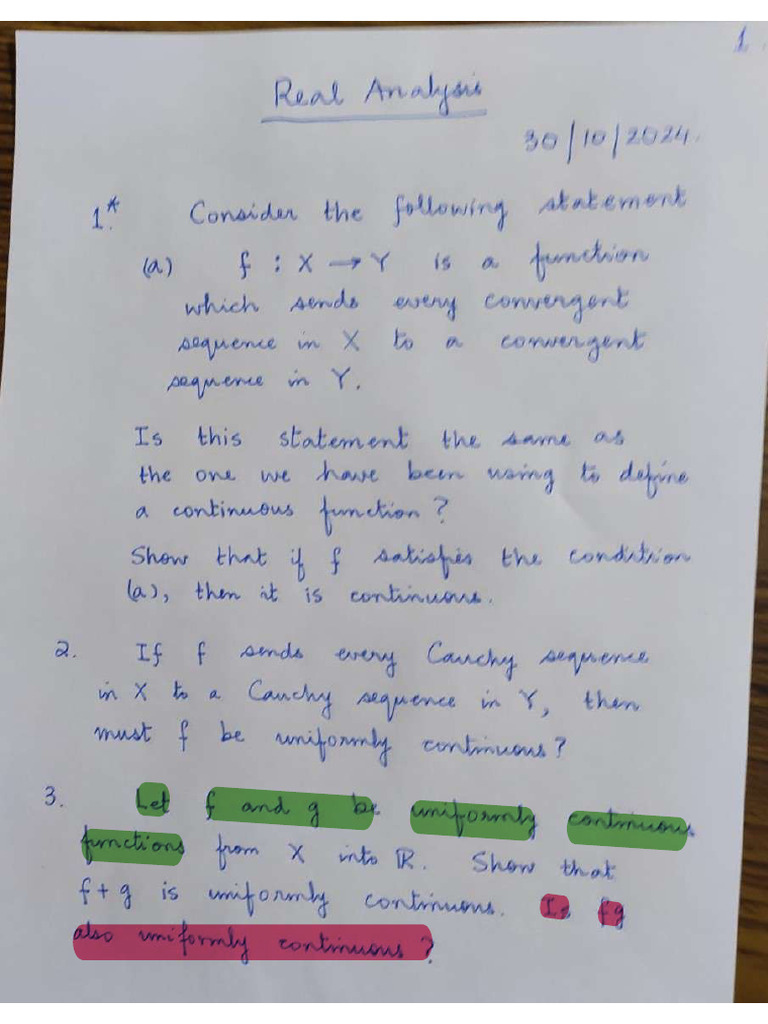 1.
Real Analysis
30/10/2024.
1.* Consider the following statement
(a) f : X → Y is a function
which sends every convergent
sequence in X to a convergent
sequence in Y.
Is this statement the same as
the one we have been using to define
a continuous function?
Show that if f satisfies the condition
(a), then it is continuous.
2. If f sends every Cauchy sequence
in X to a Cauchy sequence in Y, then
must f be uniformly continuous?
3. Let f and g be uniformly continuous
functions from X into ℝ. Show that
f+g is uniformly continuous. Is fg
also uniformly continuous?